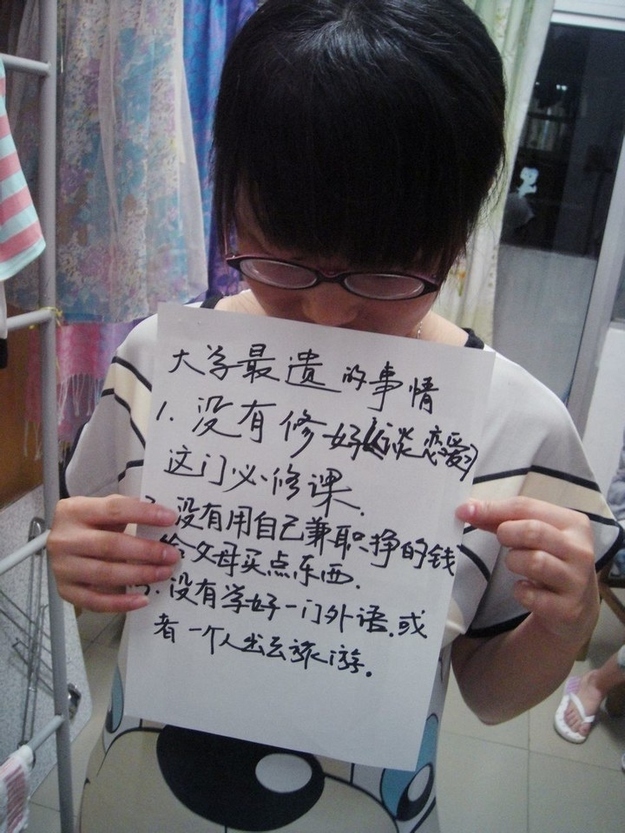 大学最遗的事情
1. 没有修好《谈恋爱》
这门必修课.
2. 没有用自己兼职挣的钱
给父母买点东西.
3. 没有学好一门外语.或
者一个人出去旅游.